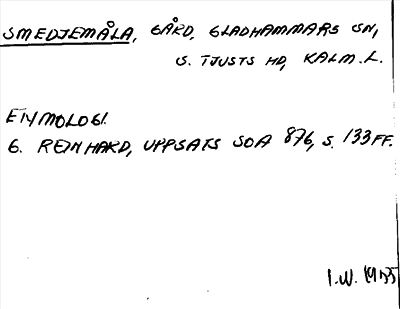 SMEDJEMÅLA, GÅRD, GLADHAMMARS SN,
S. TJUSTS HD, KALM. L.
ETYMOLOGI.
G. REINHARD, UPPSATS SOA 876, S. 133 FF.
I.W. 1955